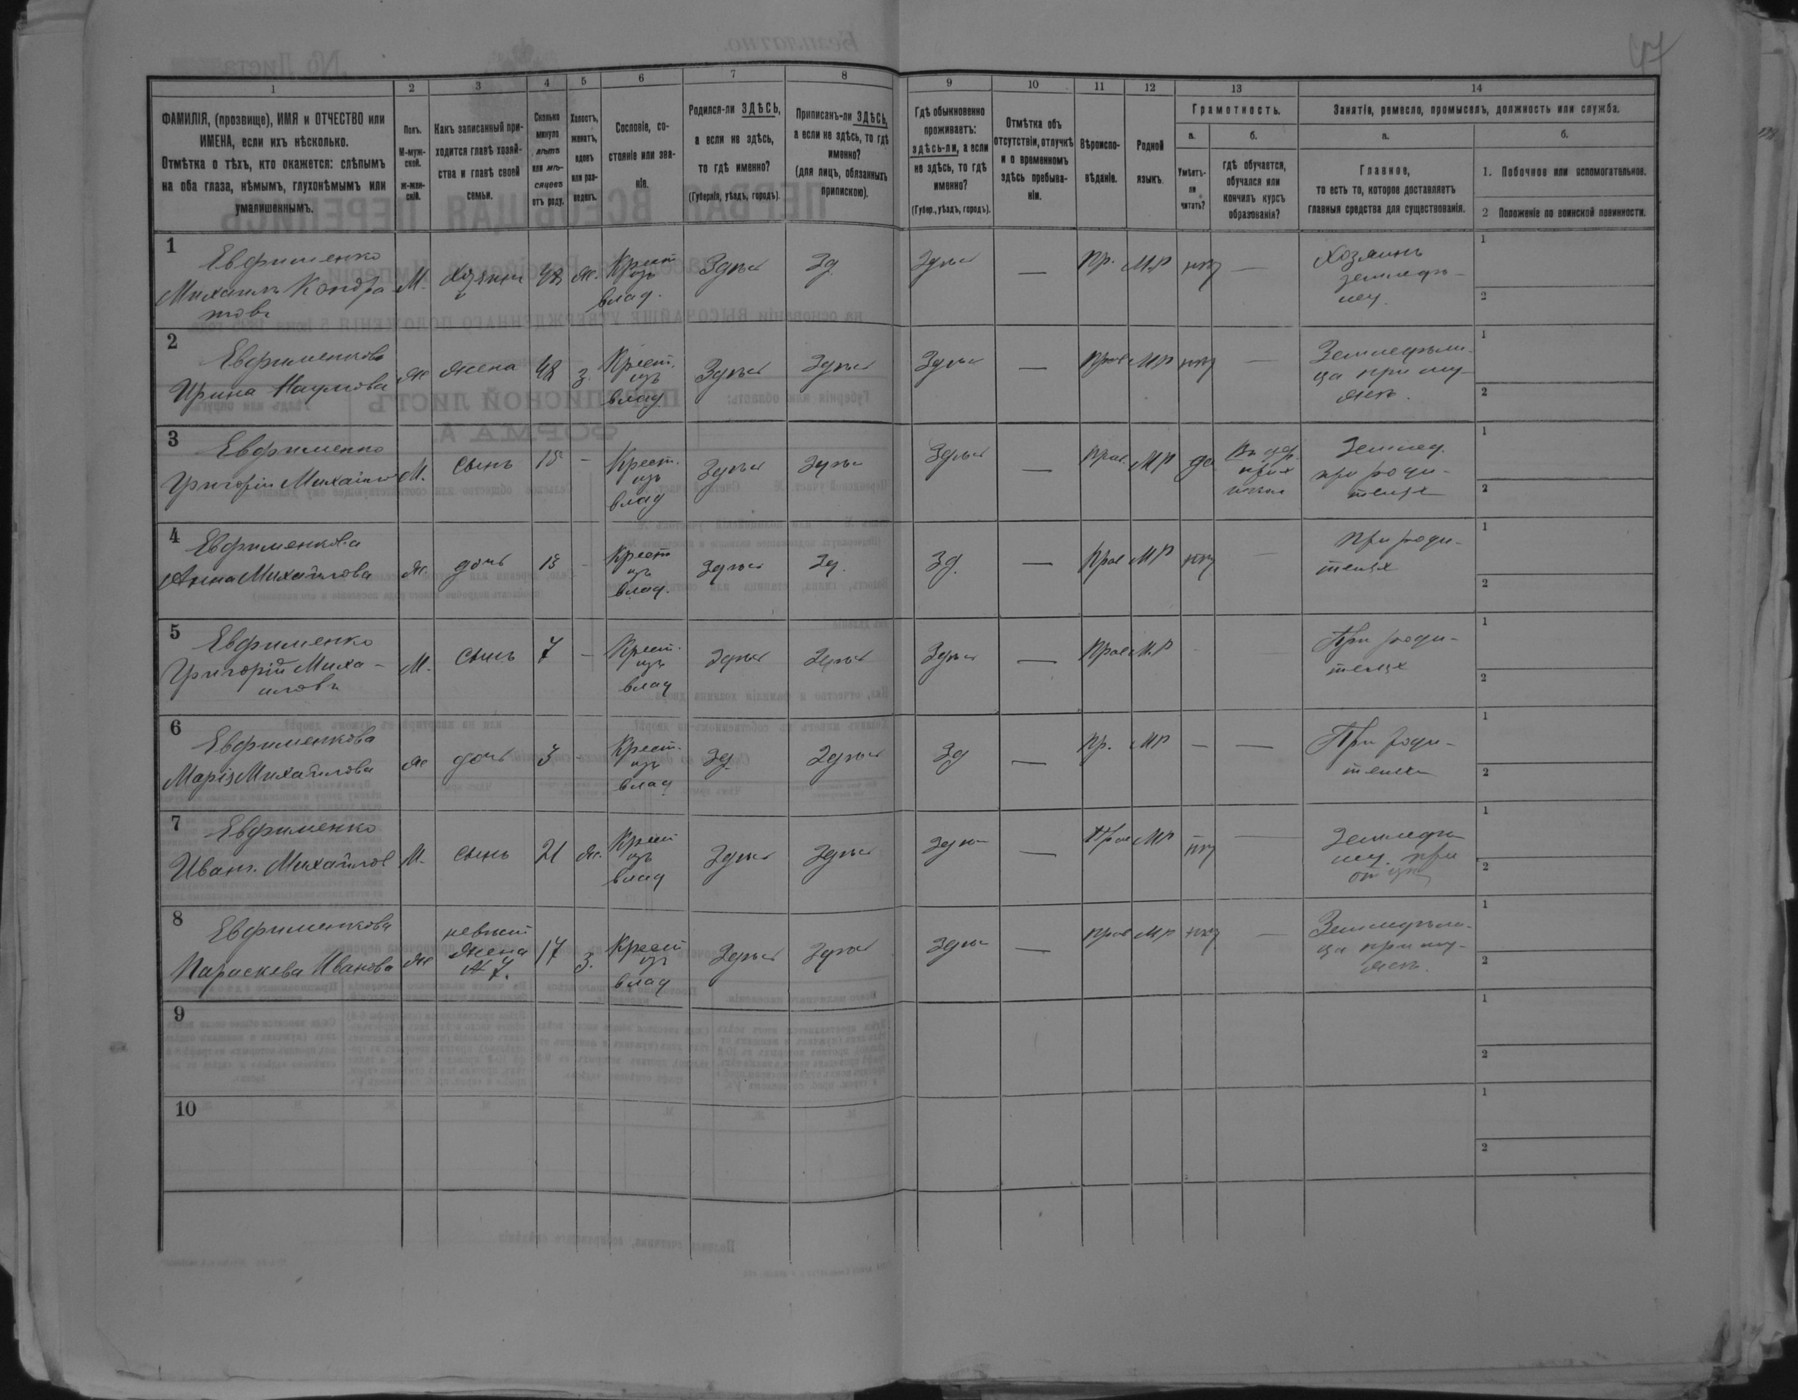 47
1 2 3 4 5 6 7 8 9 10 11 12 13 14
ФАМИЛІЯ, (прозвище), ИМЯ и ОТЧЕСТВО или
ИМЕНА, если ихъ нѣсколько.
Отмѣтка о тѣхъ, кто окажется: слѣпымъ
на оба глаза, нѣмымъ, глухонѣмымъ или
умалишеннымъ.
Полъ.
М-муж-
ской.
ж-жен-
скій.
Какъ записанный при-
ходится главѣ хозяй-
ства и главѣ своей
семьи.
Сколько
минуло
лѣтъ
или мѣ-
сяцевъ
отъ роду.
Холостъ,
женатъ,
вдовъ
или раз-
веденъ.
Сословіе, со-
стояніе или зва-
ніе.
Родился-ли ЗДѢСЬ,
а если не здѣсь,
то гдѣ именно?
(Губернія, уѣздъ, городъ).
Приписанъ-ли ЗДѢСЬ,
а если не здѣсь, то гдѣ
именно?
(для лицъ, обязанныхъ
припискою).
Гдѣ обыкновенно
проживаетъ:
здѣсь-ли, а если
не здѣсь, то гдѣ
именно?
(Губер., уѣздъ, городъ).
Отмѣтка объ
отсутствіи, отлучкѣ
и о временномъ
здѣсь пребыва-
ніи.
Вѣроиспо-
вѣданіе.
Родной
языкъ.
Грамотность.
а.
Умѣетъ-
ли
читать?
б.
гдѣ обучается,
обучался или
кончилъ курсъ
образованія?
Занятіе, ремесло, промыселъ, должность или служба.
а.
Главное,
то есть то, которое доставляетъ
главныя средства для существованія.
б.
1. Побочное или вспомогательное.
2 Положеніе по воинской повинности.
1
Евфименко
Михаилъ Кондра
товъ
М. Хозяинъ 48 ж. Крест изъ влад. Здѣсь Зд Здѣсь — Пр. МР нѣт —
Хозяинъ
земледѣ-
лец.
1
2
2
Евфименкова
Ирина Наумова
ж жена 48 з. Крест. изъ влад Здѣсь Здѣсь Здѣсь — Прав МР нѣт —
Земледѣли-
ца при му-
жѣ.
1
2
3
Евфименко
Григорій Михаилов
М. сынъ 15 - Крест. изъ влад Здѣсь Здѣсь Здѣсь — Прав МР да
Землед.
при роди-
теляхъ
1
2
4
Евфименкова
Анна Михайлова
ж дочь 13 - Крест изъ влад. Здѣсь Зд. Зд. — Прав МР нѣт —
При роди-
теляхъ
1
2
5
Евфименко
Григорій Миха-
иловъ
М. сынъ 7 - Крест. изъ влад Здѣсь Здѣсь Здѣсь — Прав МР -
При роди-
теляхъ
1
2
6
Евфименкова
Марія Михайлова
ж дочь 3 - Крест. изъ влад Зд Здѣсь Зд — Пр. МР — —
При роди-
теляхъ
1
2
7
Евфименко
Иванъ Михайлов
М. сынъ 21 ж. Крест изъ влад Здѣсь Здѣсь Здѣсь — Прав МР нѣт —
Земледѣ-
лец при
отцѣ
1
2
8
Евфименкова
Параскева Иванова
ж жена № 7. 17 з. Крест изъ влад Здѣсь Здѣсь Здѣсь — Прав МР нѣт —
Земледѣли-
ца при му-
жѣ.
1
2
9
1
2
10
1
2